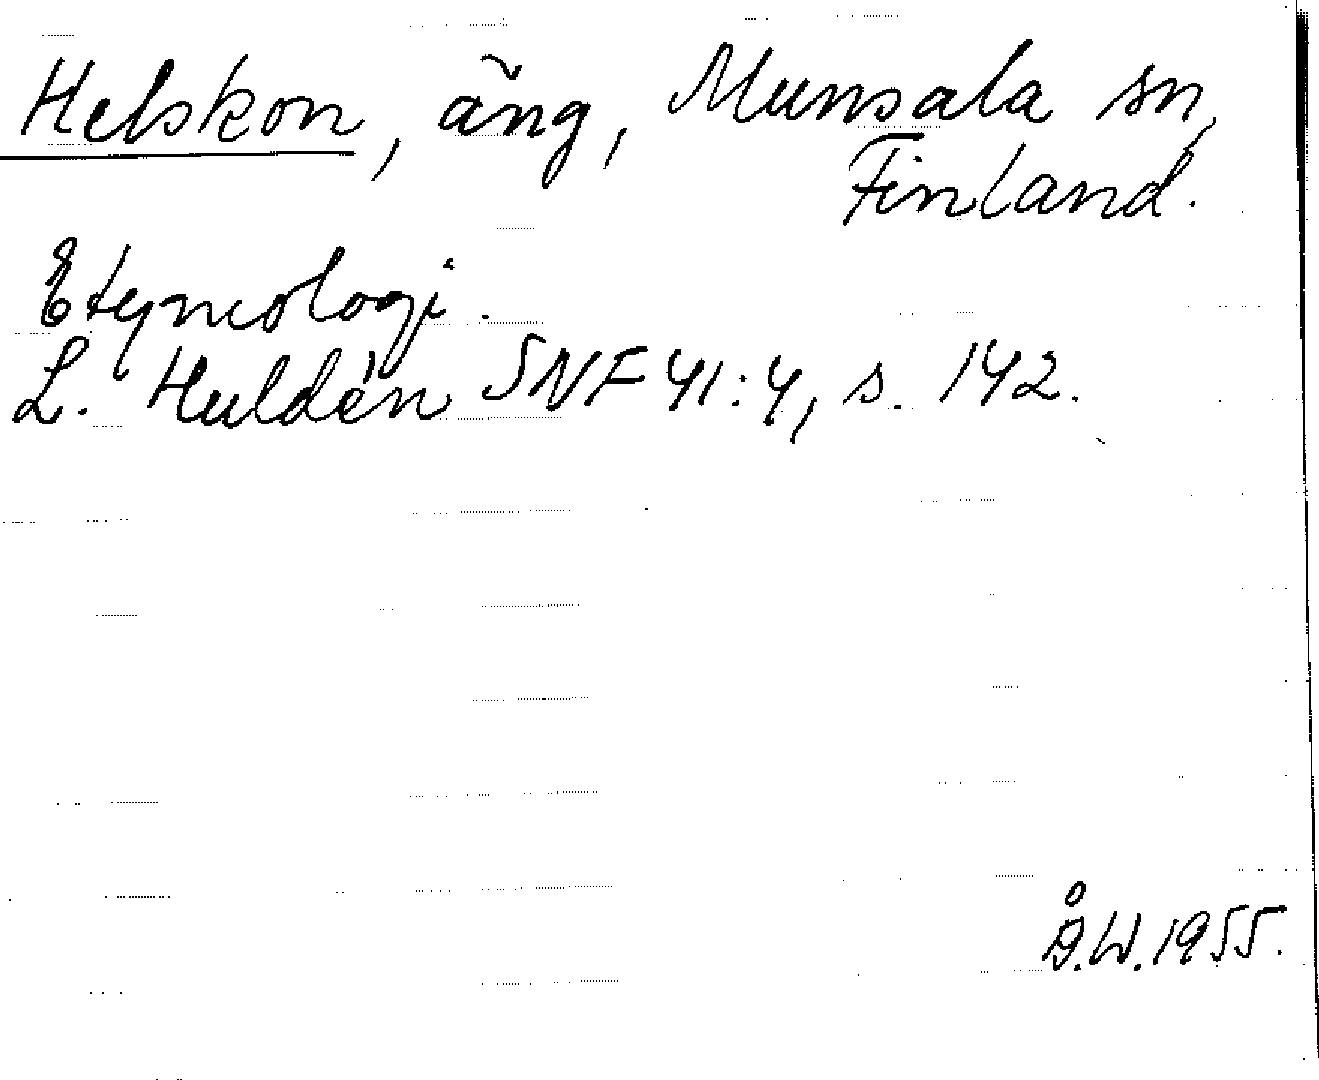 Helskon, äng, Munsala sn,
Finland.
Etymologi.
L. Huldén SNF 41:4, s. 142.
Å.W. 1955.